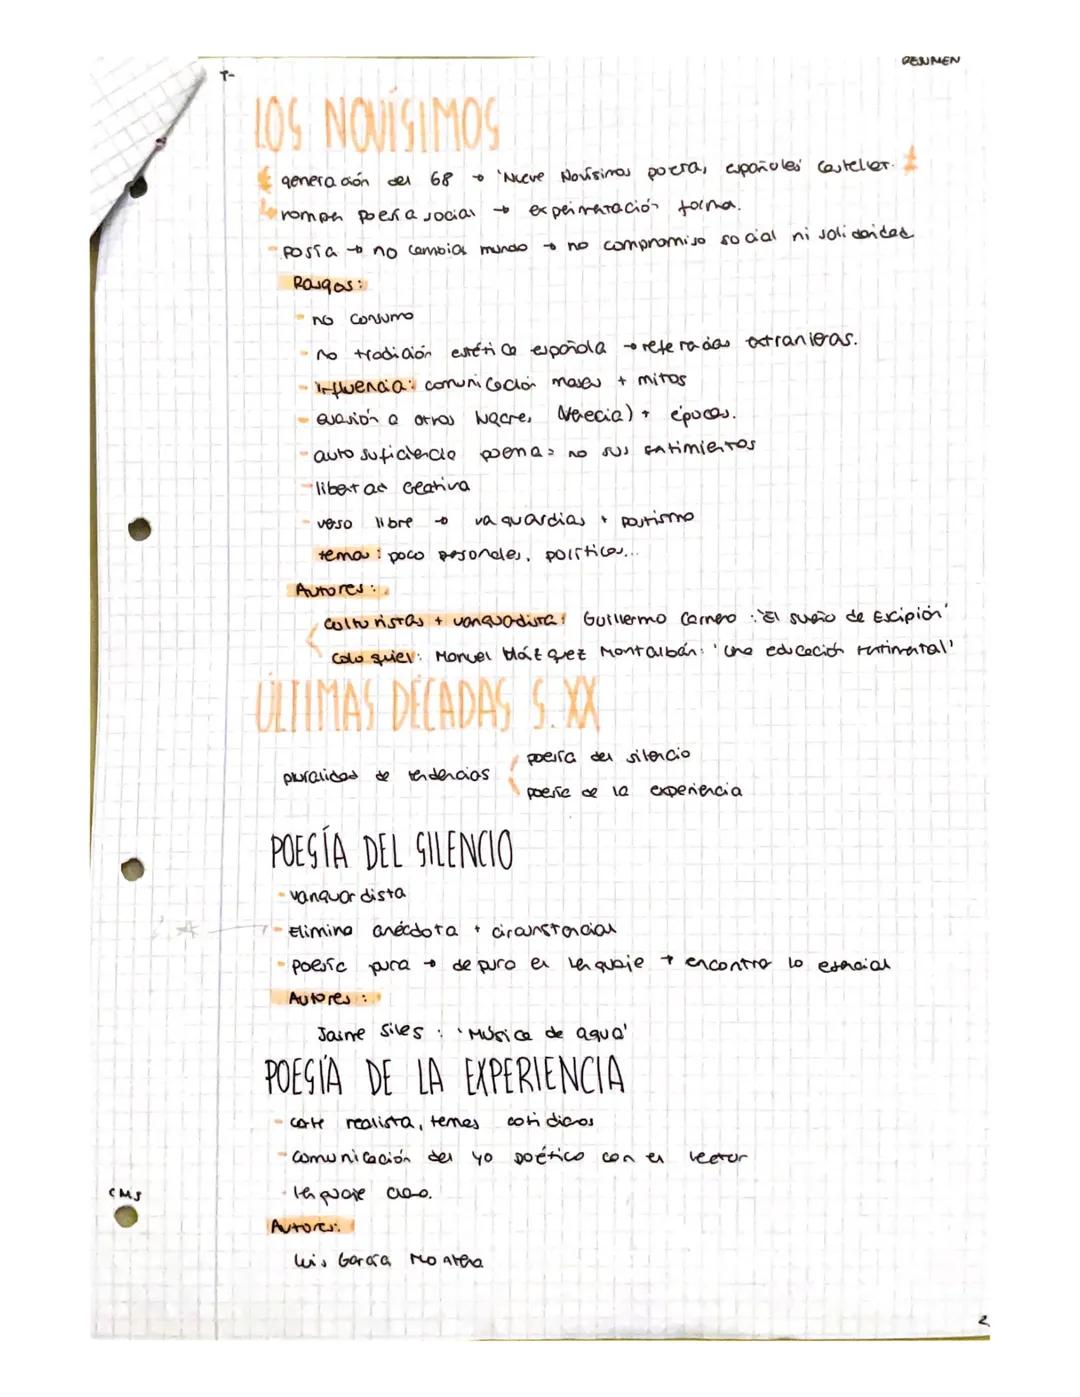 RESUMEN
T-
LOS NOVÍSIMOS
generación del 68 → 'Nueve Novísimos poetas españoles' Castellet.
rompen poesía social → experimentación forma.
- poesía → no cambiar mundo → no compromiso social ni solidaridad
Rasgos:
- no consumo
- no tradición estética española → referencias extranjeras.
- influencia: comunicación masas + mitos
- evasión a otros lugares (Venecia) + épocas.
- autosuficiencia poema = no sus sentimientos
- libertad creativa
- verso libre → vanguardias + postismo
temas: poco personales, políticos...
Autores:
culturistas + vanguardista: Guillermo Carnero: 'El sueño de Escipión'
coloquial: Manuel Vázquez Montalbán: 'Una educación sentimental'
ÚLTIMAS DÉCADAS S. XX
poesía del silencio
pluralidad de tendencias
poesía de la experiencia
POESÍA DEL SILENCIO
- vanguardista
- Elimina anécdota + circunstancial
- poesía pura → depura el lenguaje + encontrar lo esencial
Autores:
Jaime Siles: 'Música de agua'
POESÍA DE LA EXPERIENCIA
- corte realista, temas cotidianos
- comunicación del yo poético con el lector
- lenguaje claro.
CMS
Autores:
Luis García Montero
2